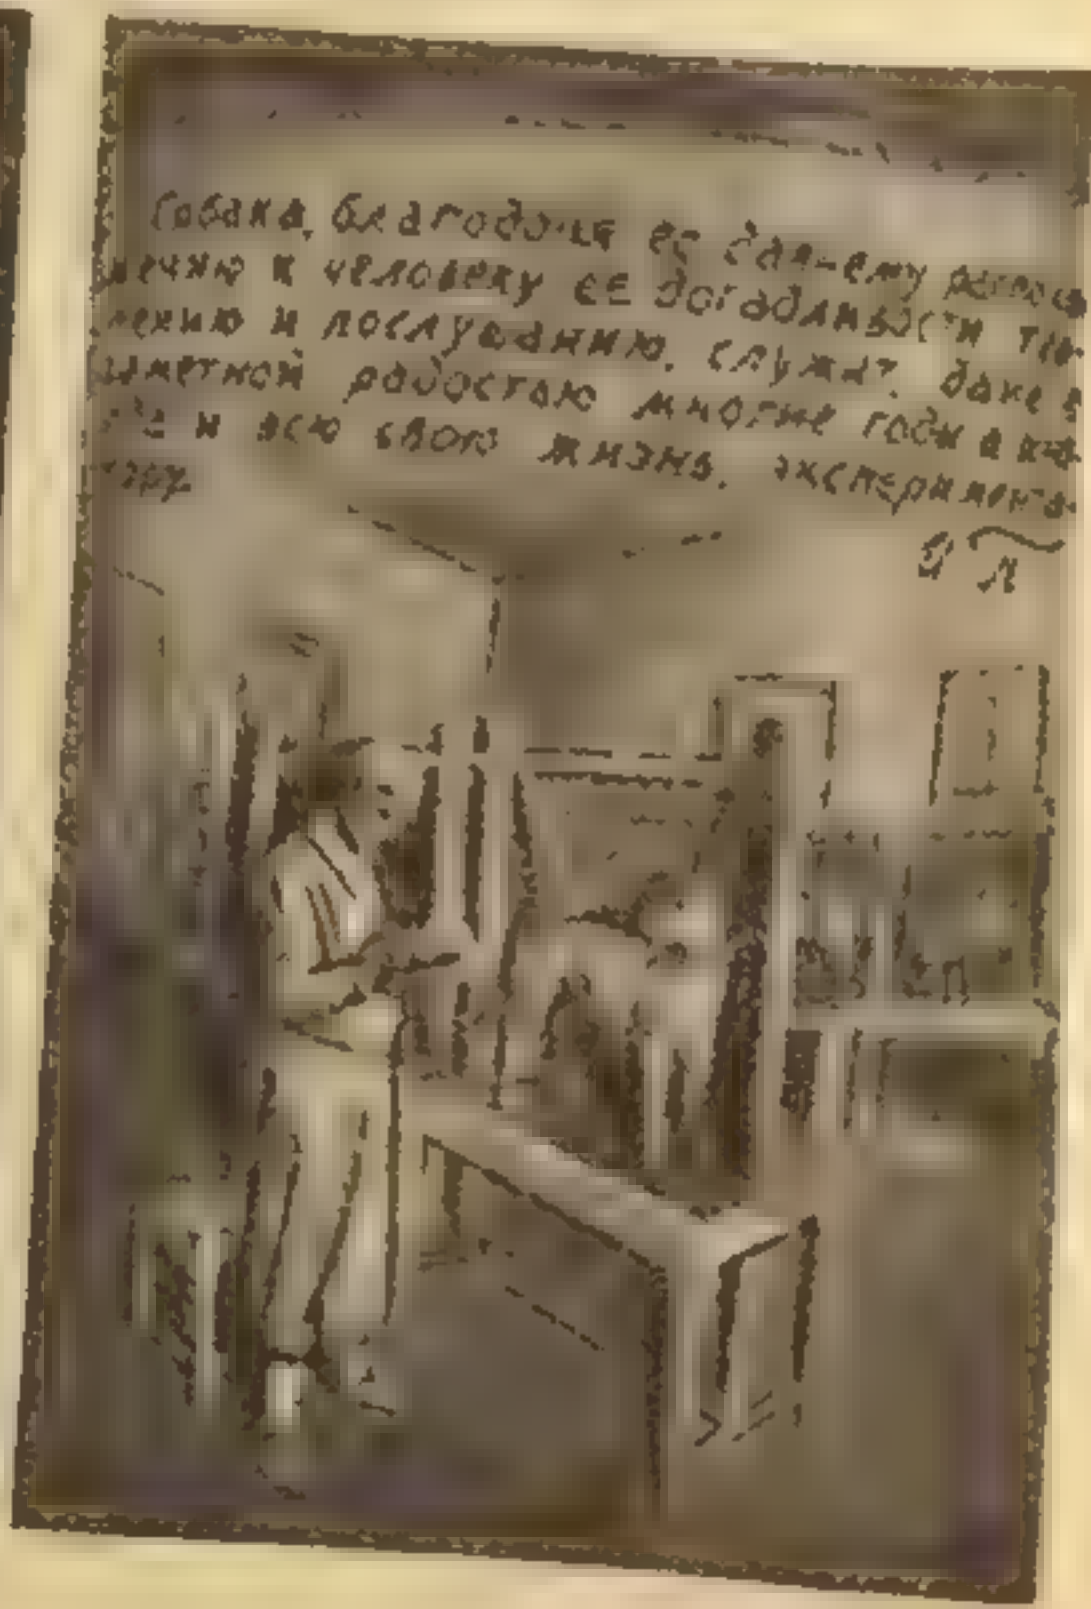 Собака, благодаря ее давнему располо
жению к человеку ее догадливости тер
пению и послушанию, служит, даже с
заметной радостью многие годы а ино
гда и всю свою жизнь, эксперимента
тору.